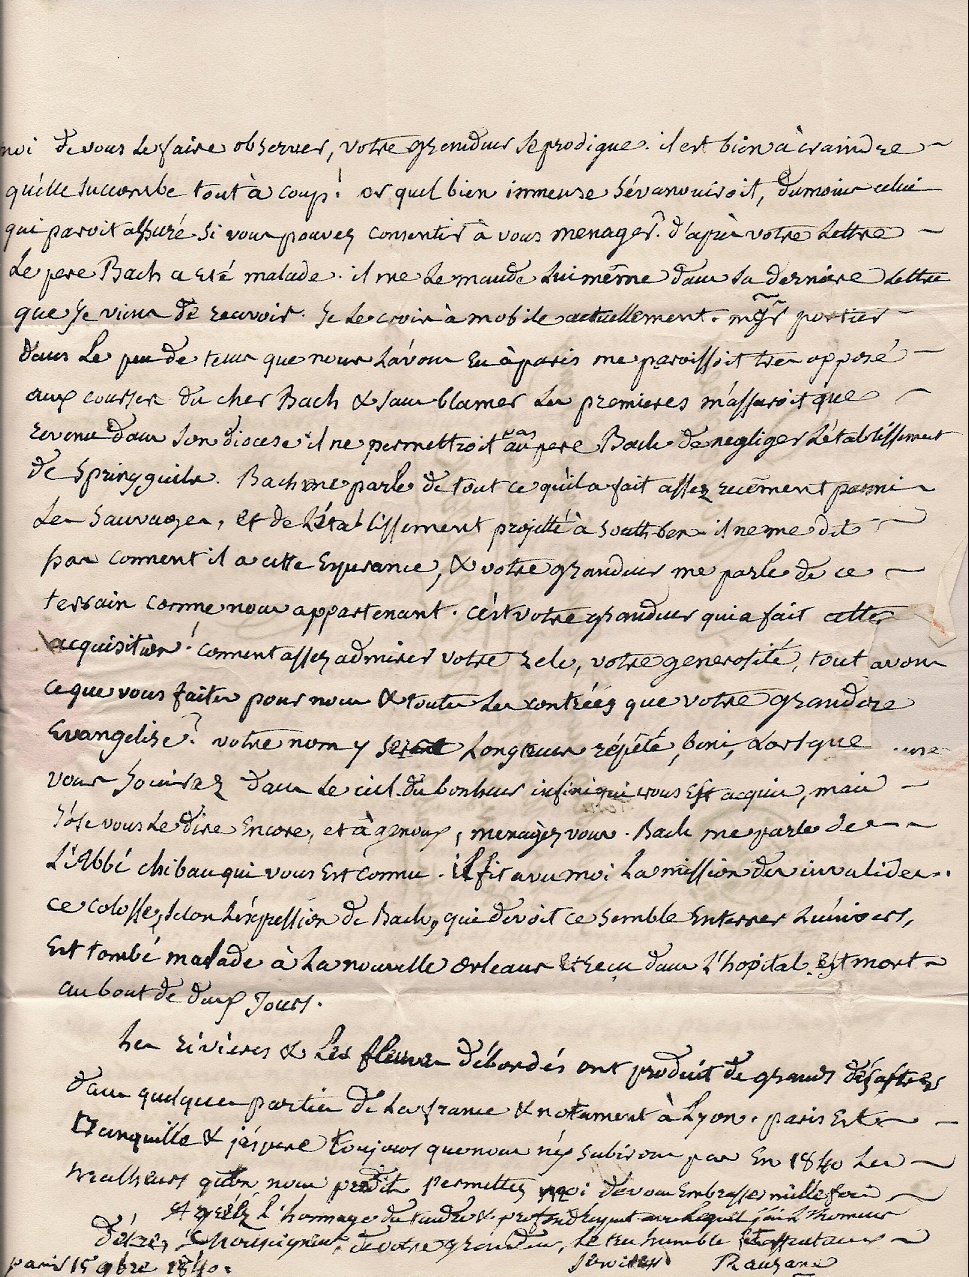 moi de vous le faire observer, votre grandeur se prodigue. il est bien à craindre
qu'elle succombe tout à coup! or quel bien immense s'évanouiroit, du moins celui
qui paroit assuré si vous pouvez consentir à vous menager? d'après votre Lettre
Le pere Bach a été malade. il me Le mande Lui même dans sa derniere Lettre
que je viens de recevoir. Je Le crois à mobile actuellement. mgr portier
dans Le peu de tems que nous L'avons Eu à paris me paroissoit très opposé
aux courses du cher Bach & sans blamer Les premieres m'assuroit que
revenu dans son diocese il ne permettroit pas au pere Bach de negliger L'établissement
de Springguila. Bach me parle de tout ce qu'il a fait assez recemment parmi
Les Sauvages, et de L'établissement projetté à South ben. il ne me dit
pas comment il a cette Esperance, & votre grandeur me parle de ce
terrain comme nous appartenant. c'est votre grandeur qui a fait cette
acquisition! comment assez admirer votre zele, votre generosité, tout
ce que vous faites pour nous & toutes Les contrées que votre grandeur
Evangelise? votre nom y sera Longtems répété, beni, Lorsque
vous jouirez dans Le ciel du bonheur infini qui vous Est acquis, mais
J'ose vous Le dire Encore, et à genoux, menagez vous. Bach me parle de
L'abbé chibaux qui vous Est connu. il fit avec moi La mission des invalides.
ce colosse, selon L'expression de Bach, qui devoit ce semble Enterrer L'univers,
Est tombé malade à La nouvelle orleans et recu dans L'hopital. est mort
au bout de deux Jours.
Les rivieres & Les fleuves débordés ont produit de grands désastres
dans quelques parties de La france & notament à Lyon. paris Est
tranquille & j'espere toujours que nous n'y subirons pas En 1840 Les
malheurs qu'on nous predit. permettez moi de vous Embrasser mille fois
Agréez L'hommage du tendre & profond respect avec Lequel j'ai L'honneur
d'être, Monseigneur, de votre grandeur, Le très humble et affectueux
paris 15 9bre 1840. serviteur Rauzan